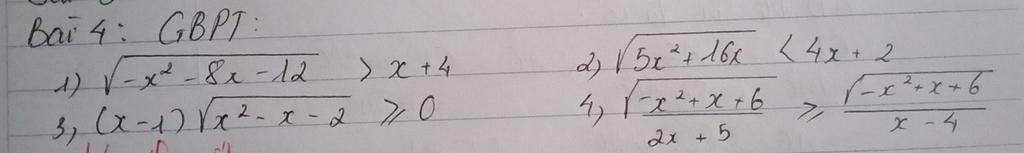 Bài 4: GBPT:
1) √(-x² - 8x - 12) > x + 4 2) √(5x² + 16x) < 4x + 2
3, (x-1)√(x² - x - 2) ⩾ 0 4, √(-x² + x + 6) / (2x + 5) ⩾ √(-x² + x + 6) / (x - 4)